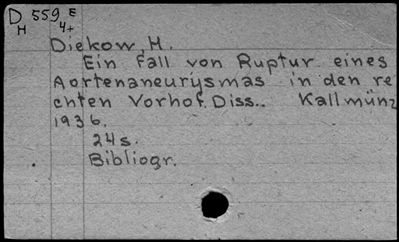 D 559 E
H 4+
Diekow, H.
Ein Fall von Ruptur eines
Aortenaneurysmas in den re
chten Vorhof. Diss.. Kallmünz
1936.
24s.
Bibliogr.